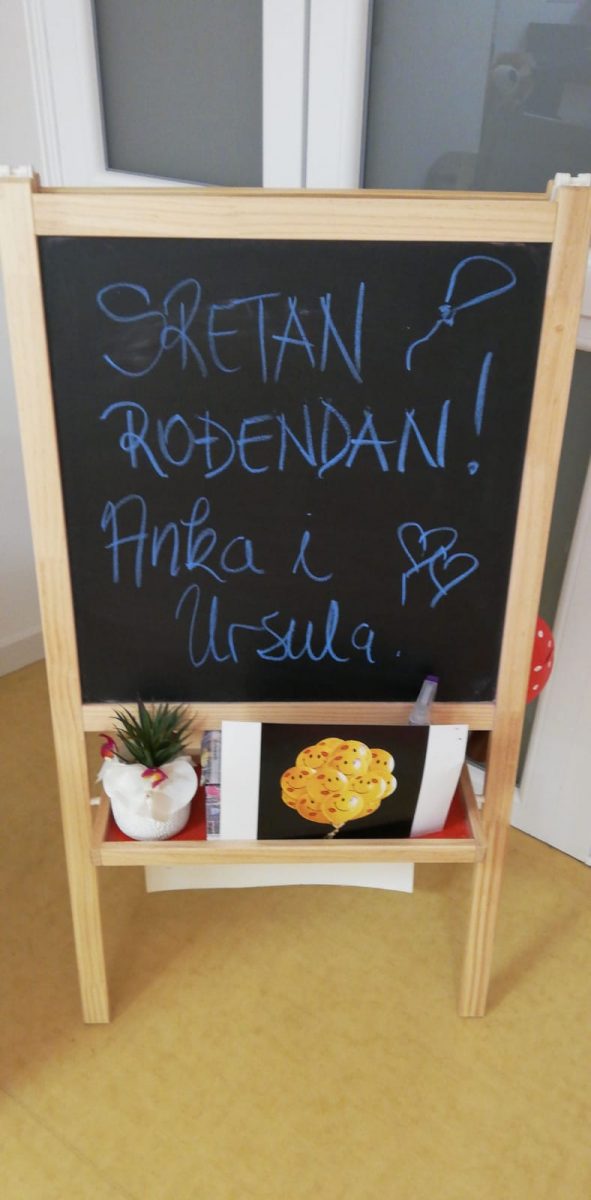 SRETAN
ROĐENDAN!
Anka i
Ursula.